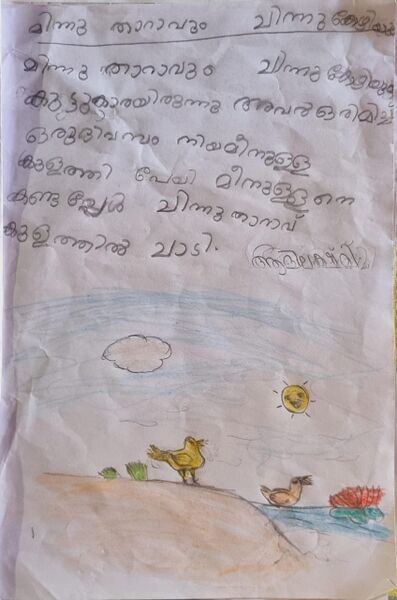 മിന്നു താറാവും ചിന്നുകോഴിയും
മിന്നു താറാവും ചിന്നുകോഴിയും
കുട്ടുകാരയിരുന്നു അവർ ഒരിമിച്ച്
ഒരുദിവസം നിയമീനുള്ള
കുളത്തി പേയി മീനുള്ളനെ
കണ്ടപ്പേൾ ചിന്നുതാറാവ്
കുളത്തിൽ ചാടി.